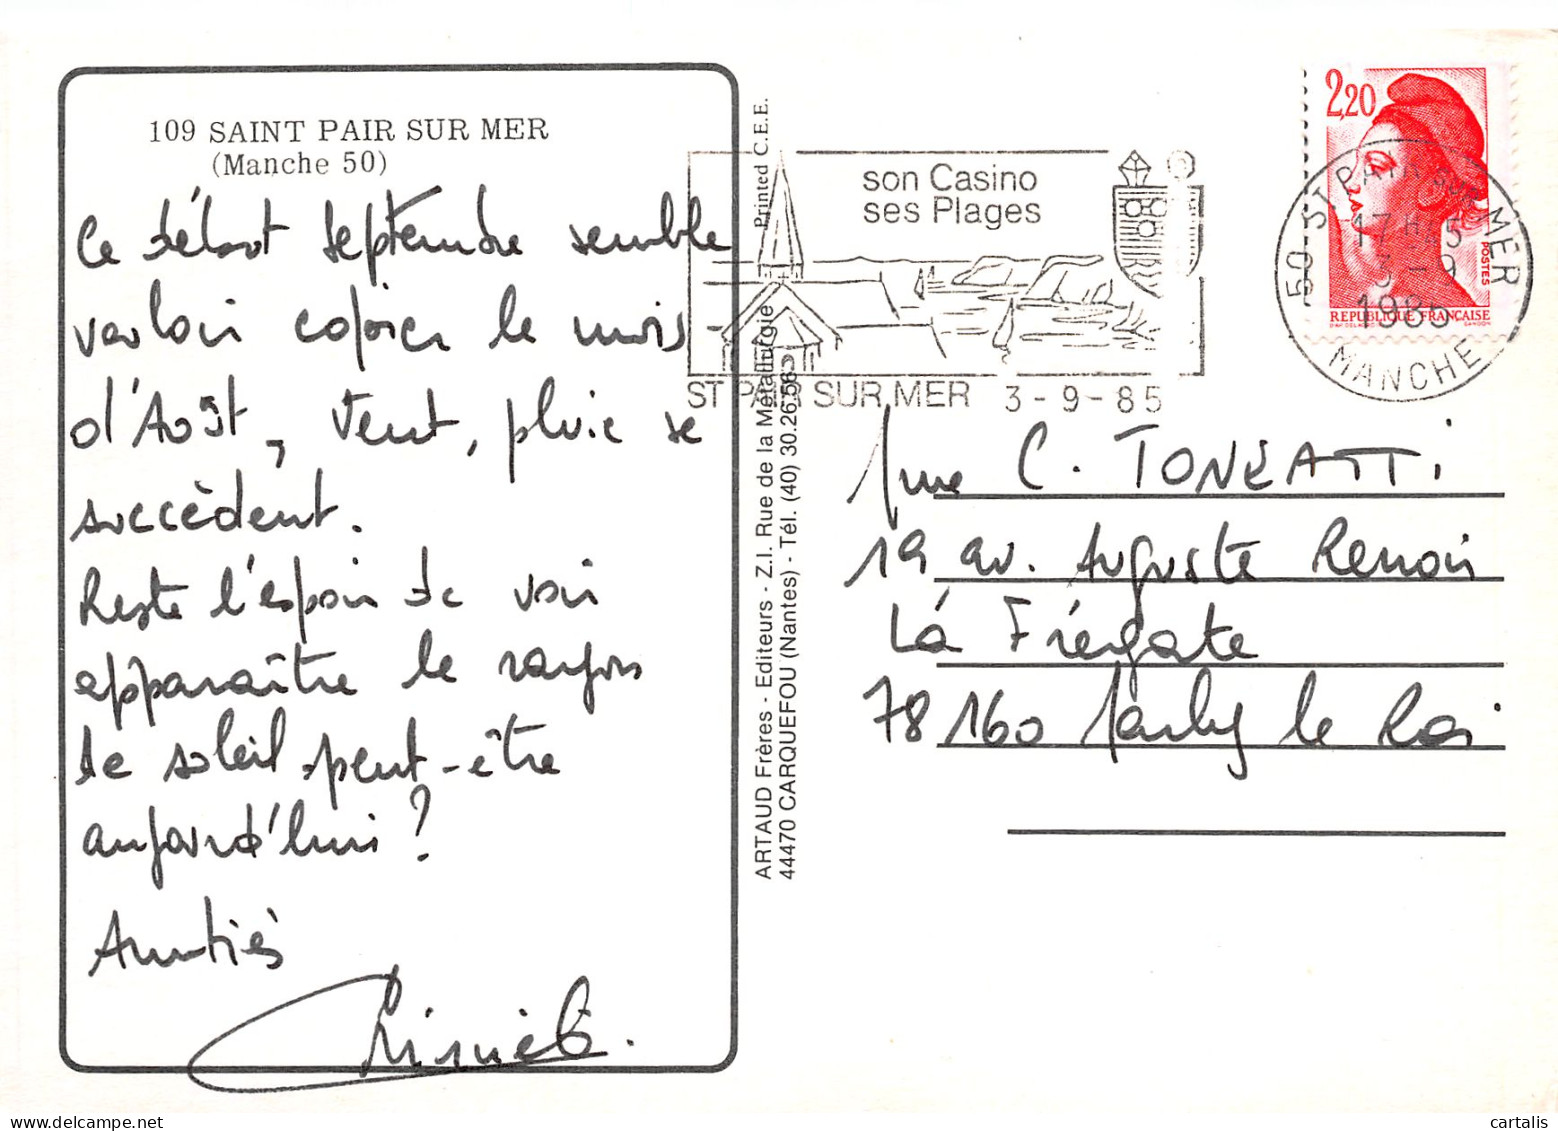 109 SAINT PAIR SUR MER
(Manche 50)
Ce début septembre semble
vouloir copier le mois
d'Août, vent, pluie se
succèdent.
Reste l'espoir de voir
apparaître le rayons
de soleil peut-être
aujourd'hui ?
Amitiés
Printed C.E.E.
ARTAUD Frères - Editeurs - Z.I. Rue de la Métallurgie
44470 CARQUEFOU (Nantes) - Tél. (40) 30.26.56
son Casino
ses Plages
ST PAIR SUR MER 3-9-85
2,20
POSTES
REPUBLIQUE FRANÇAISE
50 ST PAIR SUR MER
17H15
3-9
1985
MANCHE
Mme C. TONEATTI
19 av. Auguste Renoir
La Frégate
78160 Marly le Roi
cartalis